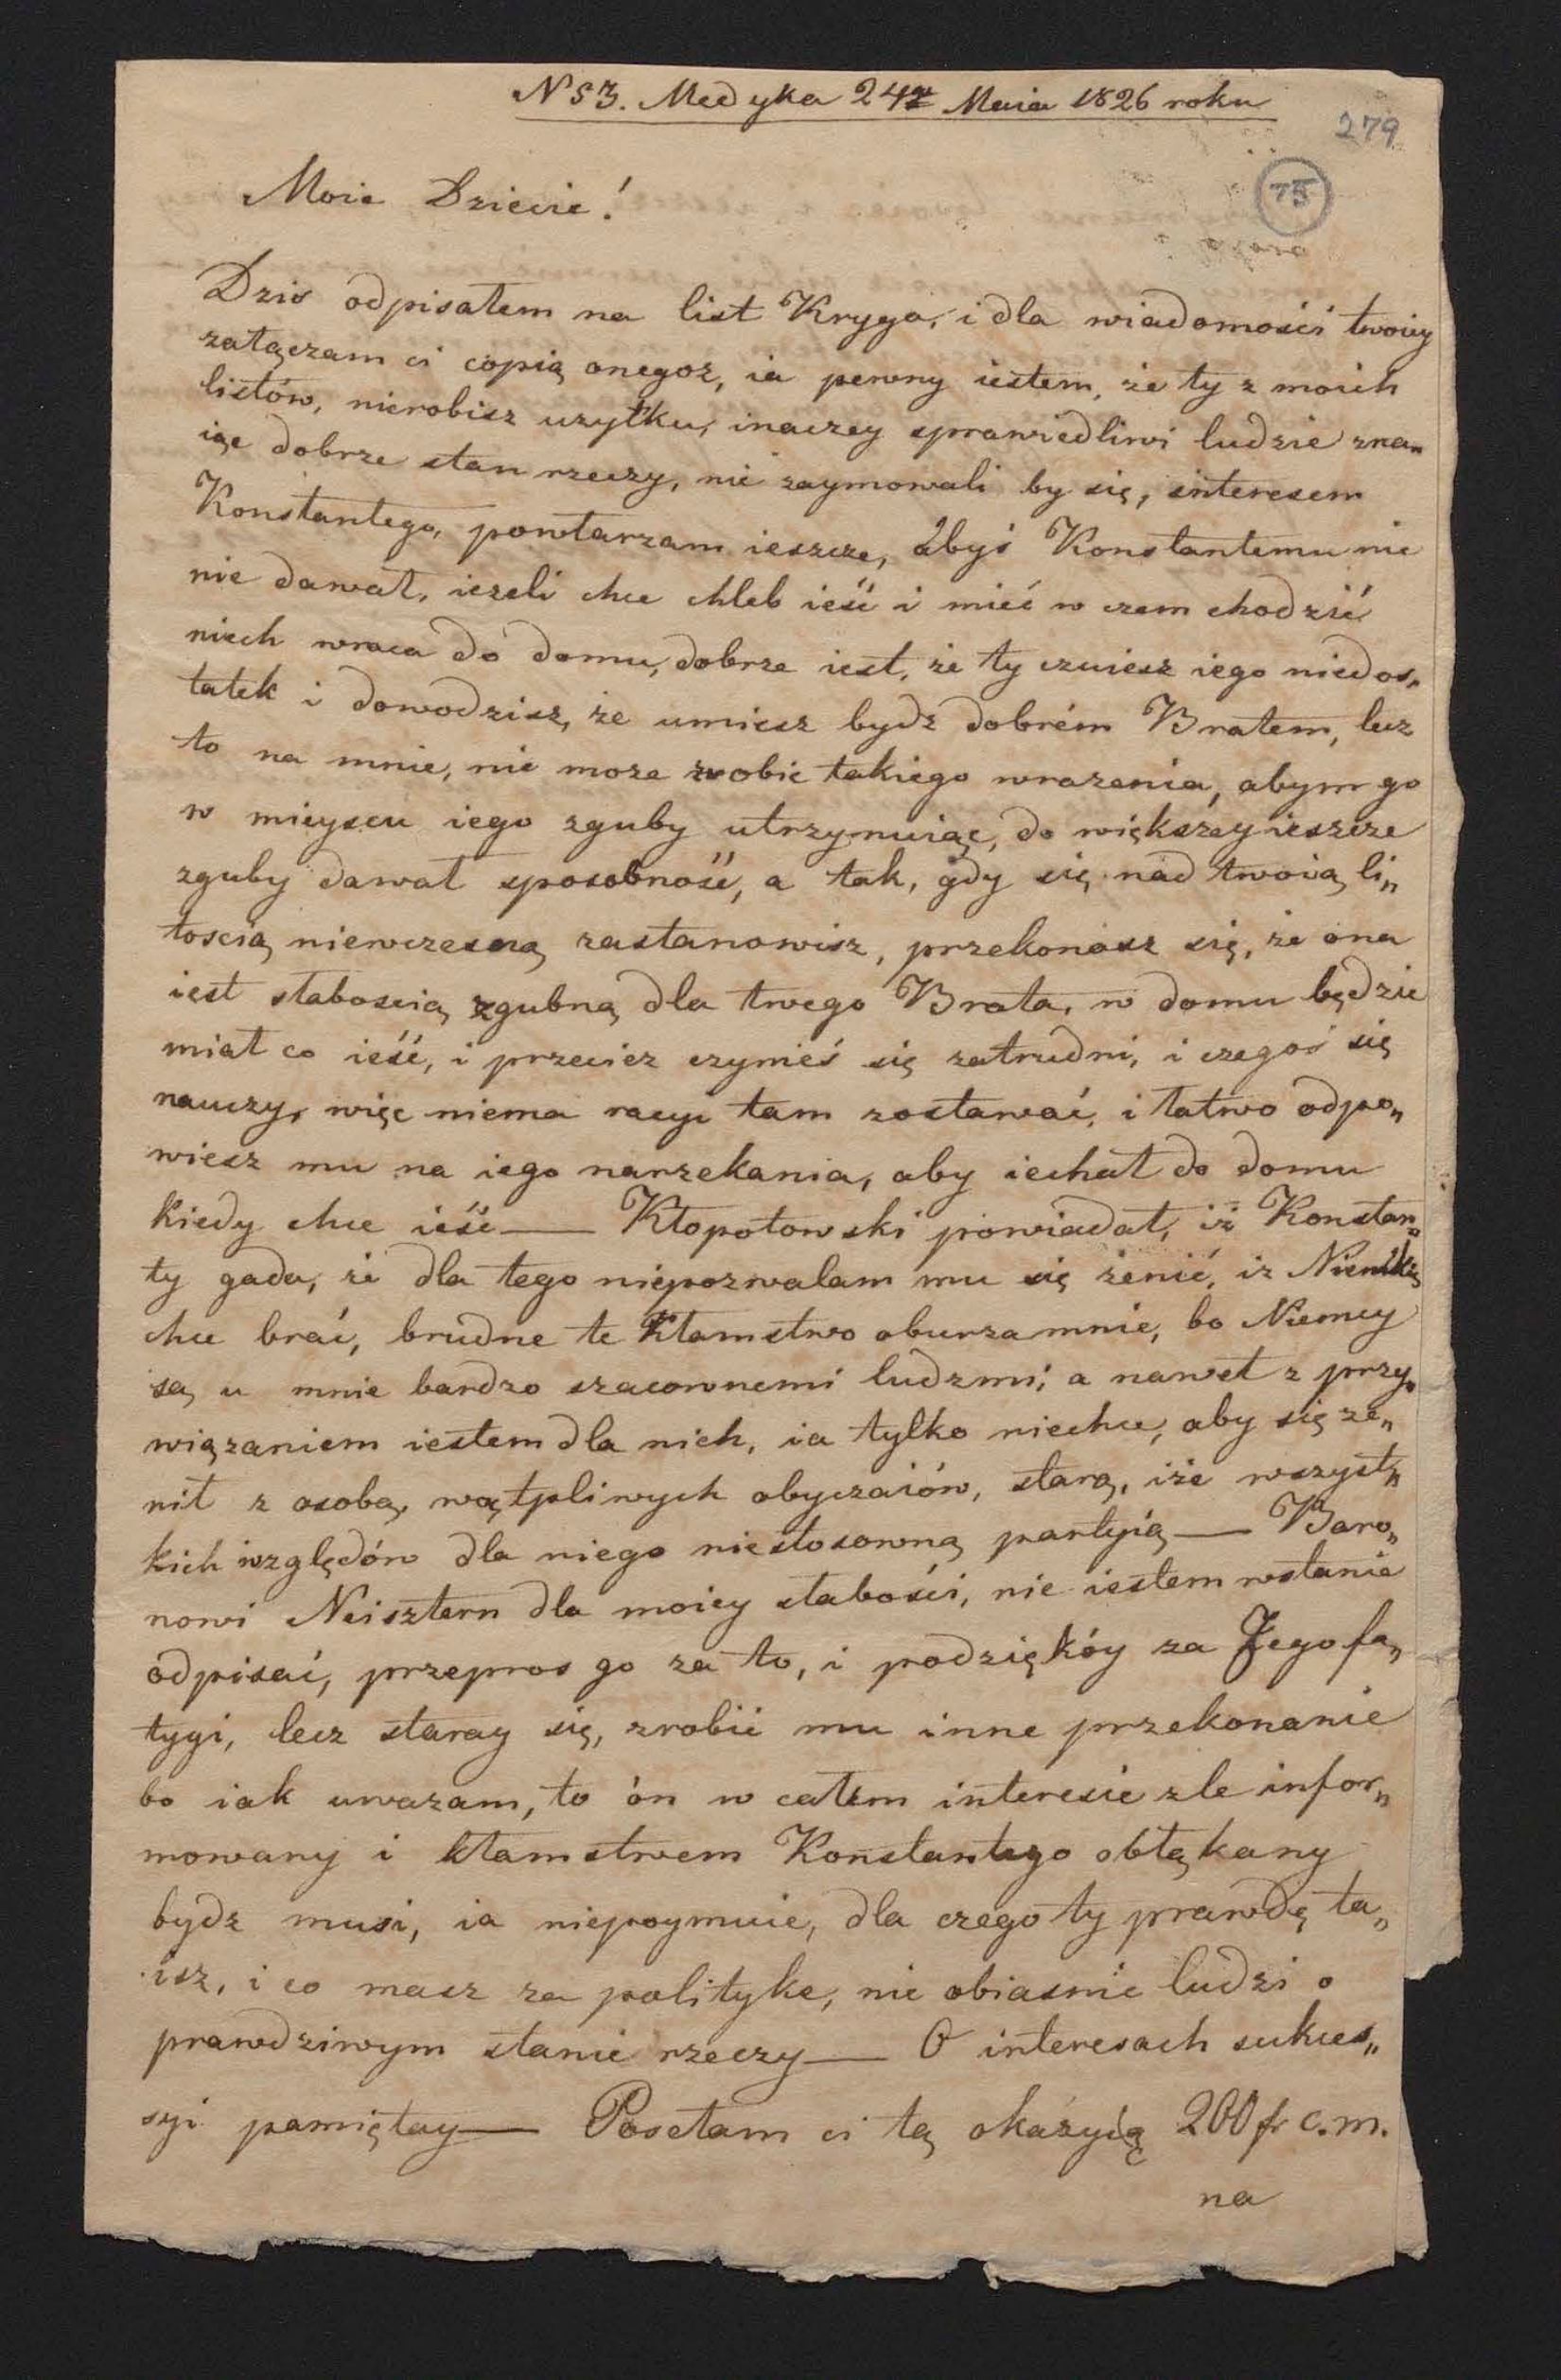 N 53. Medyka 24go Maia 1826 roku
279
75
Moie Dziecie!
Dzis odpisałem na list Kryga, i dla wiadomości twoiey
załączam ci copią onegoż, ia pewny iestem, że ty z moich
listów, nierobisz uzytku, inaczey sprawiedliwi ludzie zna„
iąc dobrze stan rzeczy, nie zaymowali by się, interesem
Konstantego, powtarzam ieszcze, abyś Konstantemu nic
nie dawał, iezeli chce chleb ieść i mieć w czem chodzić
niech wraca do domu, dobrze iest, że ty czuiesz iego niedos„
tatek i dowodzisz, że umiesz bydz dobrém Bratem, lecz
to na mnie, nie może zrobic takiego wrazenia, abym go
w mieyscu iego zguby utrzymuiąc, do większey ieszcze
zguby dawał sposobność, a tak, gdy się nad twoią li„
tością niewczesną zastanowisz, przekonasz się, że ona
iest słabością zgubną dla twego Brata, w domu będzie
miał co ieść, i przeciez czymeś się zatrudni, i czegoś się
nauczy, więc niema racyi tam zostawać, i łatwo odpo„
wiesz mu na iego narzekania, aby iechał do domu
kiedy chce ieść — Kłopotowski powiadał, iż Konstan„
ty gada, że dla tego niepozwalam mu się żenić, iz Niemkę
chce brać, brudne te kłamstwo oburza mnie, bo Niemcy
są u mnie bardzo szacownemi ludzmi, a nawet z przy„
wiązaniem iestem dla nich, ia tylko niechce, aby się że„
nił z osobą, wątpliwych obyczaiów, starą, iże wszyst„
kich względów dla niego niestosowną partyią — Baro„
nowi Neisztern dla moiey słabości, nie iestem wstanie
odpisać, przepros go za to, i podziękóy za Jego fa„
tygi, lecz staray się, zrobić mu inne przekonanie
bo iak uwazam, to ón w całem interesie zle infor„
mowany i kłamstwem Konstantego obłąkany
bydz musi, ia niepoymuie, dla czego ty prawdę ta„
isz, i co masz za polityke, nie obiasnić ludzi o
prawdziwym stanie rzeczy — O interesach sukces„
syi pamiętay — Posełam ci tą okazyią 200 fr c.m.
na